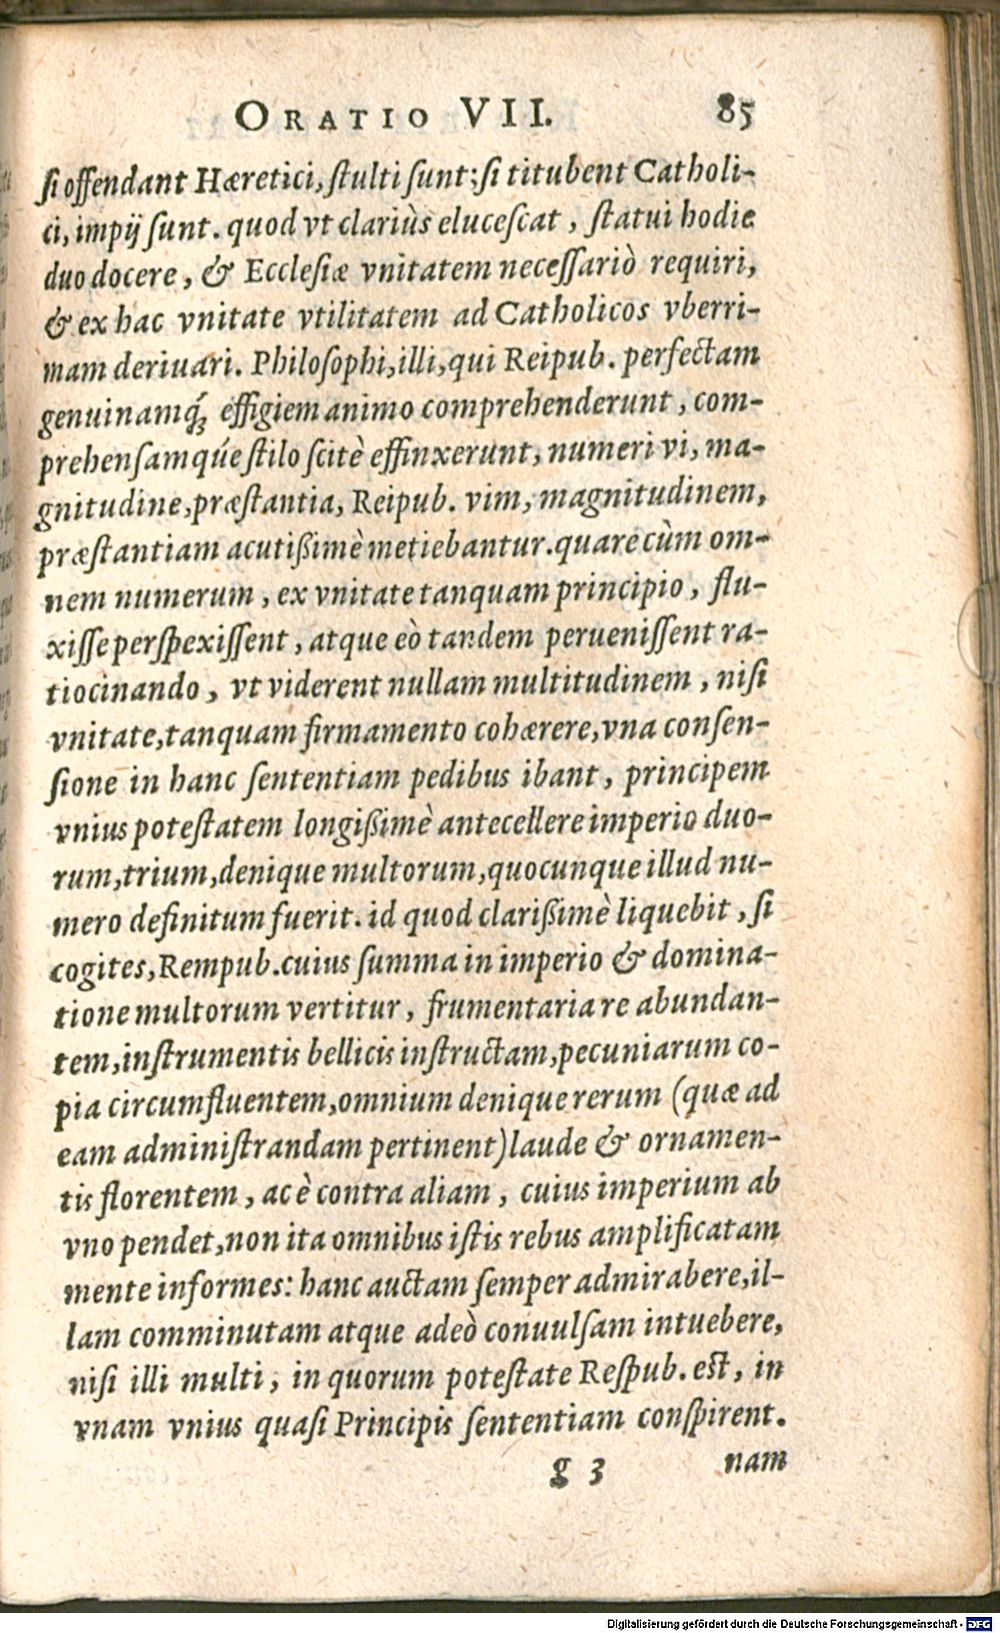 ORATIO VII. 85
ſi offendant Hæretici, ſtulti ſunt: ſi titubent Catholi-
ci, impij ſunt. quod vt clariùs eluceſcat, ſtatui hodie
duo docere, & Eccleſiæ vnitatem neceſſariò requiri,
& ex hac vnitate vtilitatem ad Catholicos vberri-
mam deriuari. Philoſophi, illi, qui Reipub. perfectam
genuinamq́; effigiem animo comprehenderunt, com-
prehenſamq́ue ſtilo ſcitè effinxerunt, numeri vi, ma-
gnitudine, præſtantia, Reipub. vim, magnitudinem,
præſtantiam acutißimè metiebantur. quare cùm om-
nem numerum, ex vnitate tanquam principio, flu-
xiſſe perſpexiſſent, atque eò tandem perueniſſent ra-
tiocinando, vt viderent nullam multitudinem, niſi
vnitate, tanquam firmamento cohærere, vna conſen-
ſione in hanc ſententiam pedibus ibant, principem
vnius poteſtatem longißimè antecellere imperio duo-
rum, trium, denique multorum, quocunque illud nu-
mero definitum fuerit. id quod clarißimè liquebit, ſi
cogites, Rempub. cuius ſumma in imperio & domina-
tione multorum vertitur, frumentaria re abundan-
tem, inſtrumentis bellicis inſtructam, pecuniarum co-
pia circumfluentem, omnium denique rerum (quæ ad
eam adminiſtrandam pertinent) laude & ornamen-
tis florentem, ac è contra aliam, cuius imperium ab
vno pendet, non ita omnibus iſtis rebus amplificatam
mente informes: hanc auctam ſemper admirabere, il-
lam comminutam atque adeò conuulſam intuebere,
niſi illi multi, in quorum poteſtate Reſpub. eſt, in
vnam vnius quaſi Principis ſententiam conſpirent.
g 3 nam
Digitalisierung gefördert durch die Deutsche Forschungsgemeinschaft - DFG